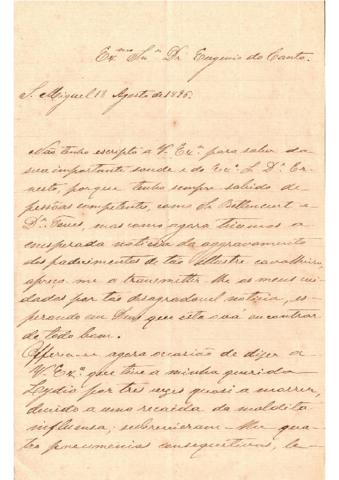 Ex.mo Snr. Dr. Eugenio do Canto.
S. Miguel 18 Agosto de 1896.
Não tenho escripto a V. Ex.a para saber da
sua importante saude e do Ex.o S. Dr. Er-
nesto, porque tenho sempre sabido de
pessoas competentes, como Sr. Bettencourt e
Dr. , mas como agora tivemos a
inesperada noticia da aggravamento
dos padecimentos de tão illustre cavalheiro,
apreço-me a transmittir-lhe os meus cui-
dados por tão desagradavel noticia, es-
perando em Deus que esta o vá encontrar
de todo bem.
Offerece-se agora occasião de dizer a
V. Ex.a que tive a minha querida
Lydia por tres vezes quasi a morrer,
devido a uma recaida da maldita
influensa; sobrevieram-lhe qua-
tro pneumonias consequitivas, te-